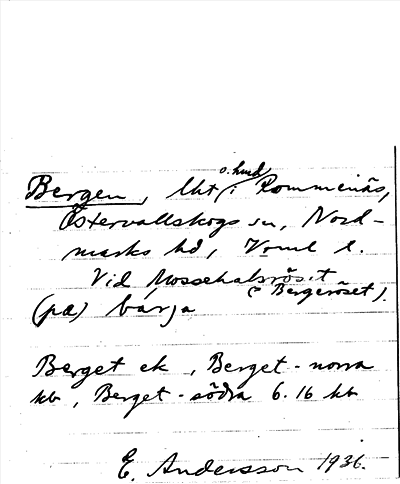 o. hmd
Bergen, lht i Rommenäs,
Östervallskogs sn, Nord-
marks hd, Vrml l.
Vid Mossehalsröset
(= Bergeröset).
(pa) barja
Berget ek, Berget - norra
kb, Berget - södra 6.16 kb
E. Andersson 1936.